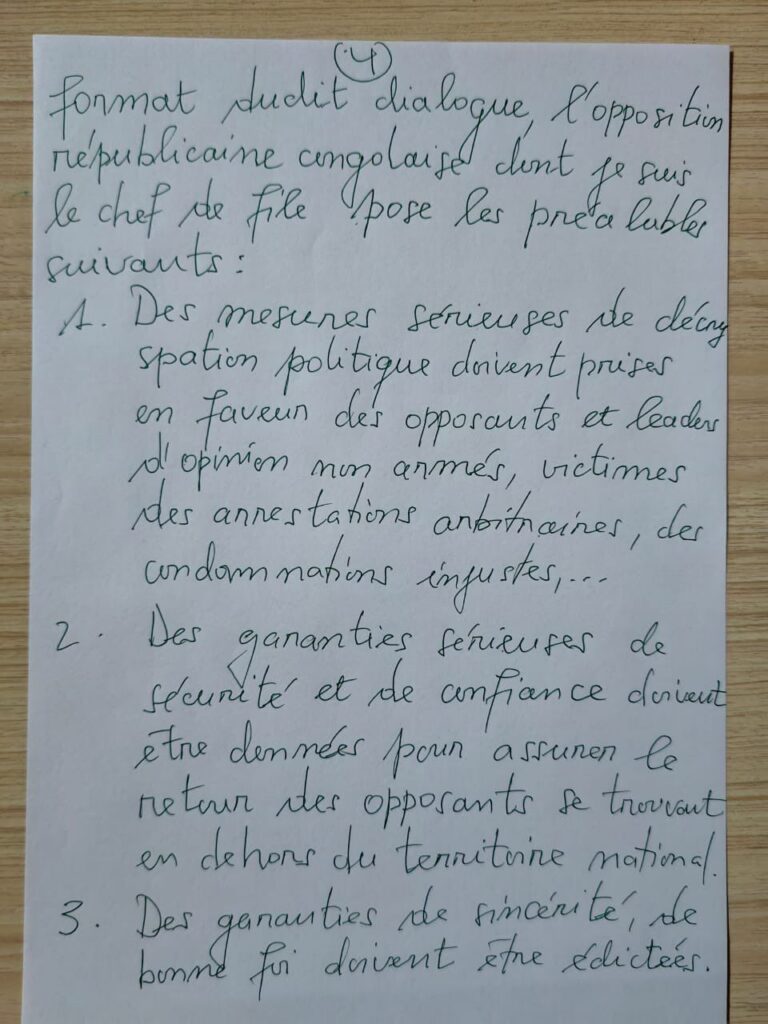 4
format dudit dialogue, l'opposition
républicaine congolaise dont je suis
le chef de file pose les préalables
suivants :
1. Des mesures sérieuses de décry
spation politique doivent prises
en faveur des opposants et leaders
d'opinion non armés, victimes
des arrestations arbitraires, des
condamnations injustes,...
2. Des garanties sérieuses de
sécurité et de confiance doivent
être données pour assurer le
retour des opposants se trouvant
en dehors du territoire national.
3. Des garanties de sincérité, de
bonne foi doivent être édictées.